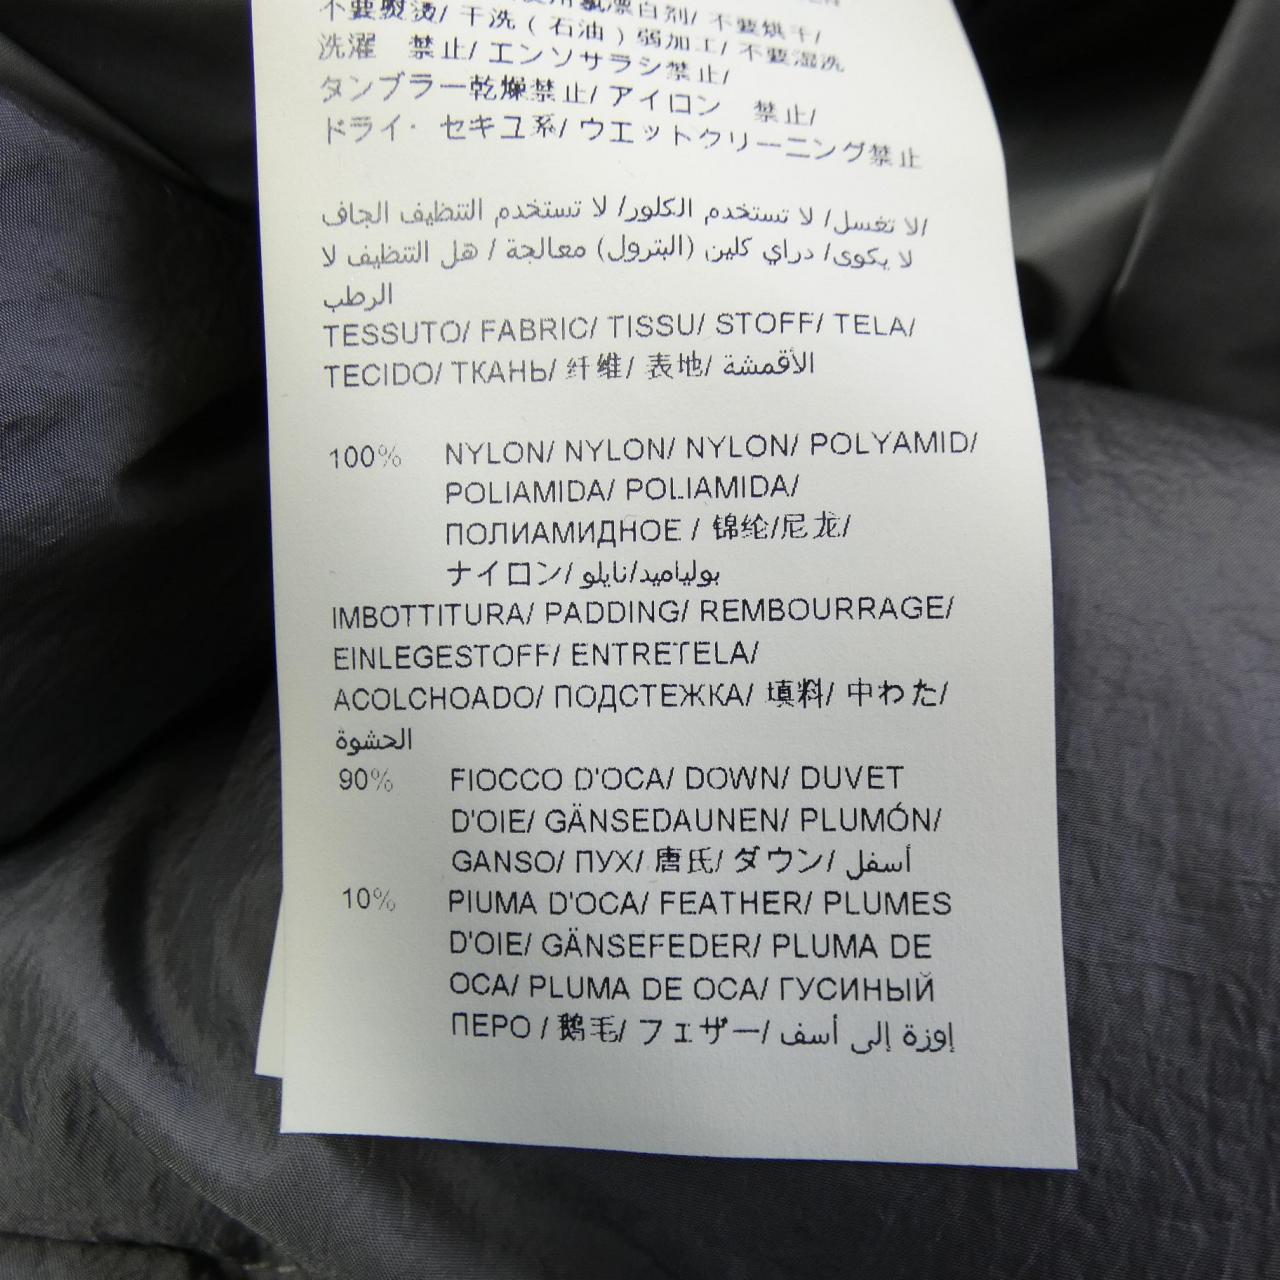 漂白剂/ 不要烘干/
不要熨烫/ 干洗 ( 石油 ) 弱加工/ 不要湿洗
洗濯 禁止/ エンソサラシ禁止/
タンブラー乾燥禁止/ アイロン 禁止/
ドライ・ セキユ系/ ウエットクリーニング禁止
لا تغسل/ لا تستخدم الكلور/ لا تستخدم التنظيف الجاف/
لا يكوى/ دراي كلين (البترول) معالجة / هل التنظيف لا
الرطب
TESSUTO/ FABRIC/ TISSU/ STOFF/ TELA/
TECIDO/ ТКАНЬ/ 纤维/ 表地/ الأقمشة
100% NYLON/ NYLON/ NYLON/ POLYAMID/
POLIAMIDA/ POLIAMIDA/
ПОЛИАМИДНОЕ / 锦纶/尼龙/
ナイロン/ بولياميد/نايلو
IMBOTTITURA/ PADDING/ REMBOURRAGE/
EINLEGESTOFF/ ENTRETELA/
ACOLCHOADO/ ПОДСТЕЖКА/ 填料/ 中わた/
الحشوة
90% FIOCCO D'OCA/ DOWN/ DUVET
D'OIE/ GÄNSEDAUNEN/ PLUMÓN/
GANSO/ ПУХ/ 唐氏/ ダウン/ أسفل
10% PIUMA D'OCA/ FEATHER/ PLUMES
D'OIE/ GÄNSEFEDER/ PLUMA DE
OCA/ PLUMA DE OCA/ ГУСИНЫЙ
ПЕРО / 鹅毛/ フェザー/ إوزة إلى أسف